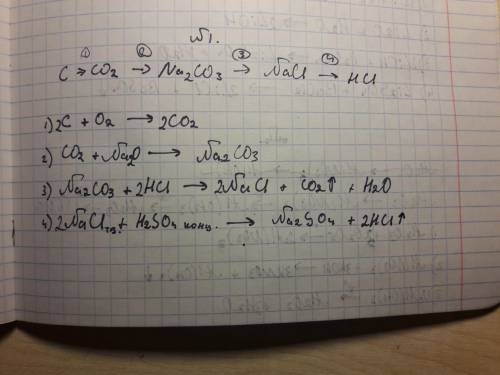 №1.
① ② ③ ④
C → CO₂ → Na₂CO₃ → NaCl → HCl
1) 2C + O₂ → 2CO₂
2) CO₂ + Na₂O → Na₂CO₃
3) Na₂CO₃ + 2HCl → 2NaCl + CO₂↑ + H₂O
4) 2NaCl тв. + H₂SO₄ конц. → Na₂SO₄ + 2HCl↑